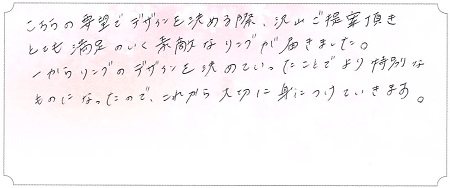 こちらの要望でデザインを決める際、沢山ご提案頂き
とても満足のいく素敵なリングが届きました。
一からリングのデザインを決めていったことでより特別な
ものになったので、これから大切に身につけていきます。